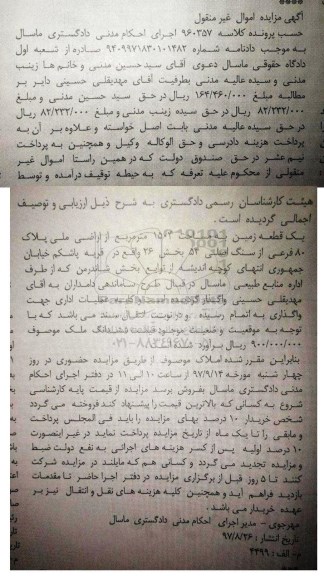 آگهی مزایده اموال غیر منقول
حسب پرونده کلاسه ۹۶۰۳۵۷ اجرای احکام مدنی دادگستری ماسال
به موجب دادنامه شماره ۹۴۰۹۹۷۱۸۳۰۱۰۱۴۸۲ صادره از شعبه اول
دادگاه حقوقی ماسال دعوی آقای سید حسین مدنی و خانم ها زینب
مدنی و سیده عالیه مدنی بطرفیت آقای مهدیقلی حسینی دایر بر
مطالبه مبلغ ۱۶۴/۴۶۰/۰۰۰ ریال در حق سید حسین مدنی و مبلغ
۸۲/۲۳۲/۰۰۰ ریال در حق سیده زینب مدنی و مبلغ ۸۲/۲۳۲/۰۰۰ ریال
در حق سیده عالیه مدنی بابت اصل خواسته و علاوه بر آن به
پرداخت هزینه دادرسی و حق الوکاله وکیل و همچنین به پرداخت
نیم عشر در حق صندوق دولت که در همین راستا اموال غیر
منقولی از محکوم علیه تعرفه که به حیطه توقیف درآمده و توسط
هیئت کارشناسان رسمی دادگستری به شرح ذیل ارزیابی و توصیف
اجمالی گردیده است .
یک قطعه زمین مترمربع از اراضی ملی پلاک
۸۰ فرعی از سنگ اصلی ۵۳ بخش ۲۶ واقع در قریه پاشکم خیابان
جمهوری انتهای کوچه اندیشه از توابع بخش شاندرمن که از طرف
اداره منابع طبیعی ماسال در قبال طرح ساماندهی دامداران به آقای
مهدیقلی حسینی واگذار عملیات اداری جهت
واگذاری به اتمام رسیده و در نوبت انتقال سند می باشد که با
توجه به موقعیت و وضعیت موجود قیمت ششدانگ ملک موصوف
۹۰۰/۰۰۰/۰۰۰ ریال برآورد
بنابراین مقرر شده املاک موصوف از طریق مزایده حضوری در روز
چهار شنبه مورخه ۹۷/۹/۱۴ از ساعت ۱۰ الی ۱۱ در دفتر اجرای احکام
مدنی دادگستری ماسال بفروش برسد مزایده از قیمت پایه کارشناسی
شروع به کسانی که بالاترین قیمت را پیشنهاد کند فروخته می گردد
شخص خریدار ۱۰ درصد بهای مزایده را باید فی المجلس پرداخت
و مابقی را تا یک ماه از تاریخ مزایده پرداخت نماید در غیر اینصورت
۱۰ درصد اولیه پس از کسر هزینه های اجرائی به نفع دولت ضبط
و مزایده تجدید می گردد و کسانی هم که مایلند در مزایده شرکت
کنند تا ۵ روز قبل از برگزاری مزایده در دفتر اجرا حاضر تا مقدمات
بازدید فراهم آید و همچنین کلیه هزینه های نقل و انتقال نیز بر
عهده خریدار می باشد .
مهرجوی - مدیر اجرای احکام مدنی دادگستری ماسال
تاریخ انتشار : ۹۷/۸/۲۶
م - الف : ۴۴۹۹